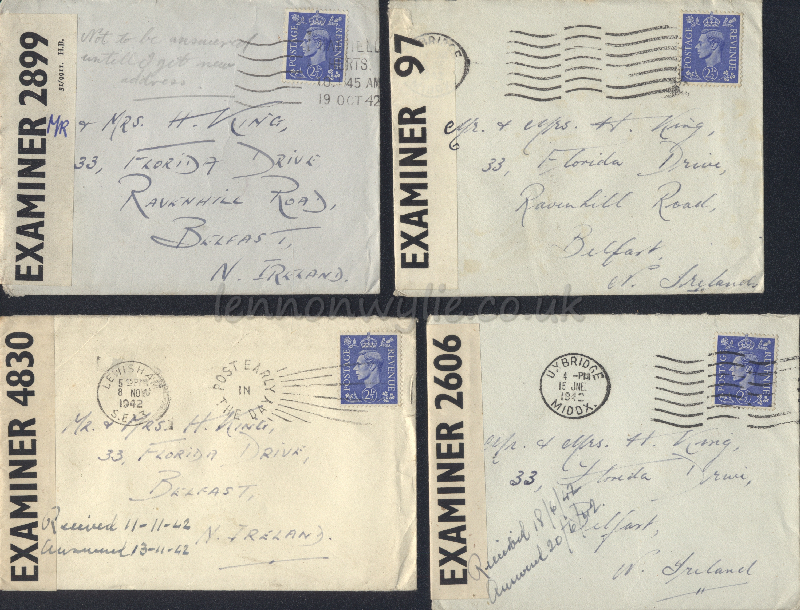 EXAMINER 2899
H.B.
Not to be answered
until I get new
address
19 OCT 42
POSTAGE REVENUE
2½D
Mr & Mrs. H. King,
33, Florida Drive
Ravenhill Road,
Belfast,
N. Ireland.
EXAMINER 97
POSTAGE REVENUE
2½D
Mr. & Mrs. H. King,
33, Florida Drive,
Ravenhill Road,
Belfast,
N. Ireland
lennonwylie.co.uk
EXAMINER 4830
LEWISHAM
8 NOV
1942
S.E.13
POST EARLY
IN
THE DAY
POSTAGE REVENUE
2½D
Mr. & Mrs. H. King,
33, Florida Drive,
Belfast,
N. Ireland.
Received 11-11-42
Answered 13-11-42
EXAMINER 2606
UXBRIDGE
4 - PM
15 JNE
1942
MIDDX.
POSTAGE REVENUE
2½D
Mr. & Mrs. H. King,
33, Florida Drive,
Belfast,
N. Ireland
Received 18/6/42
Answered 20/6/42